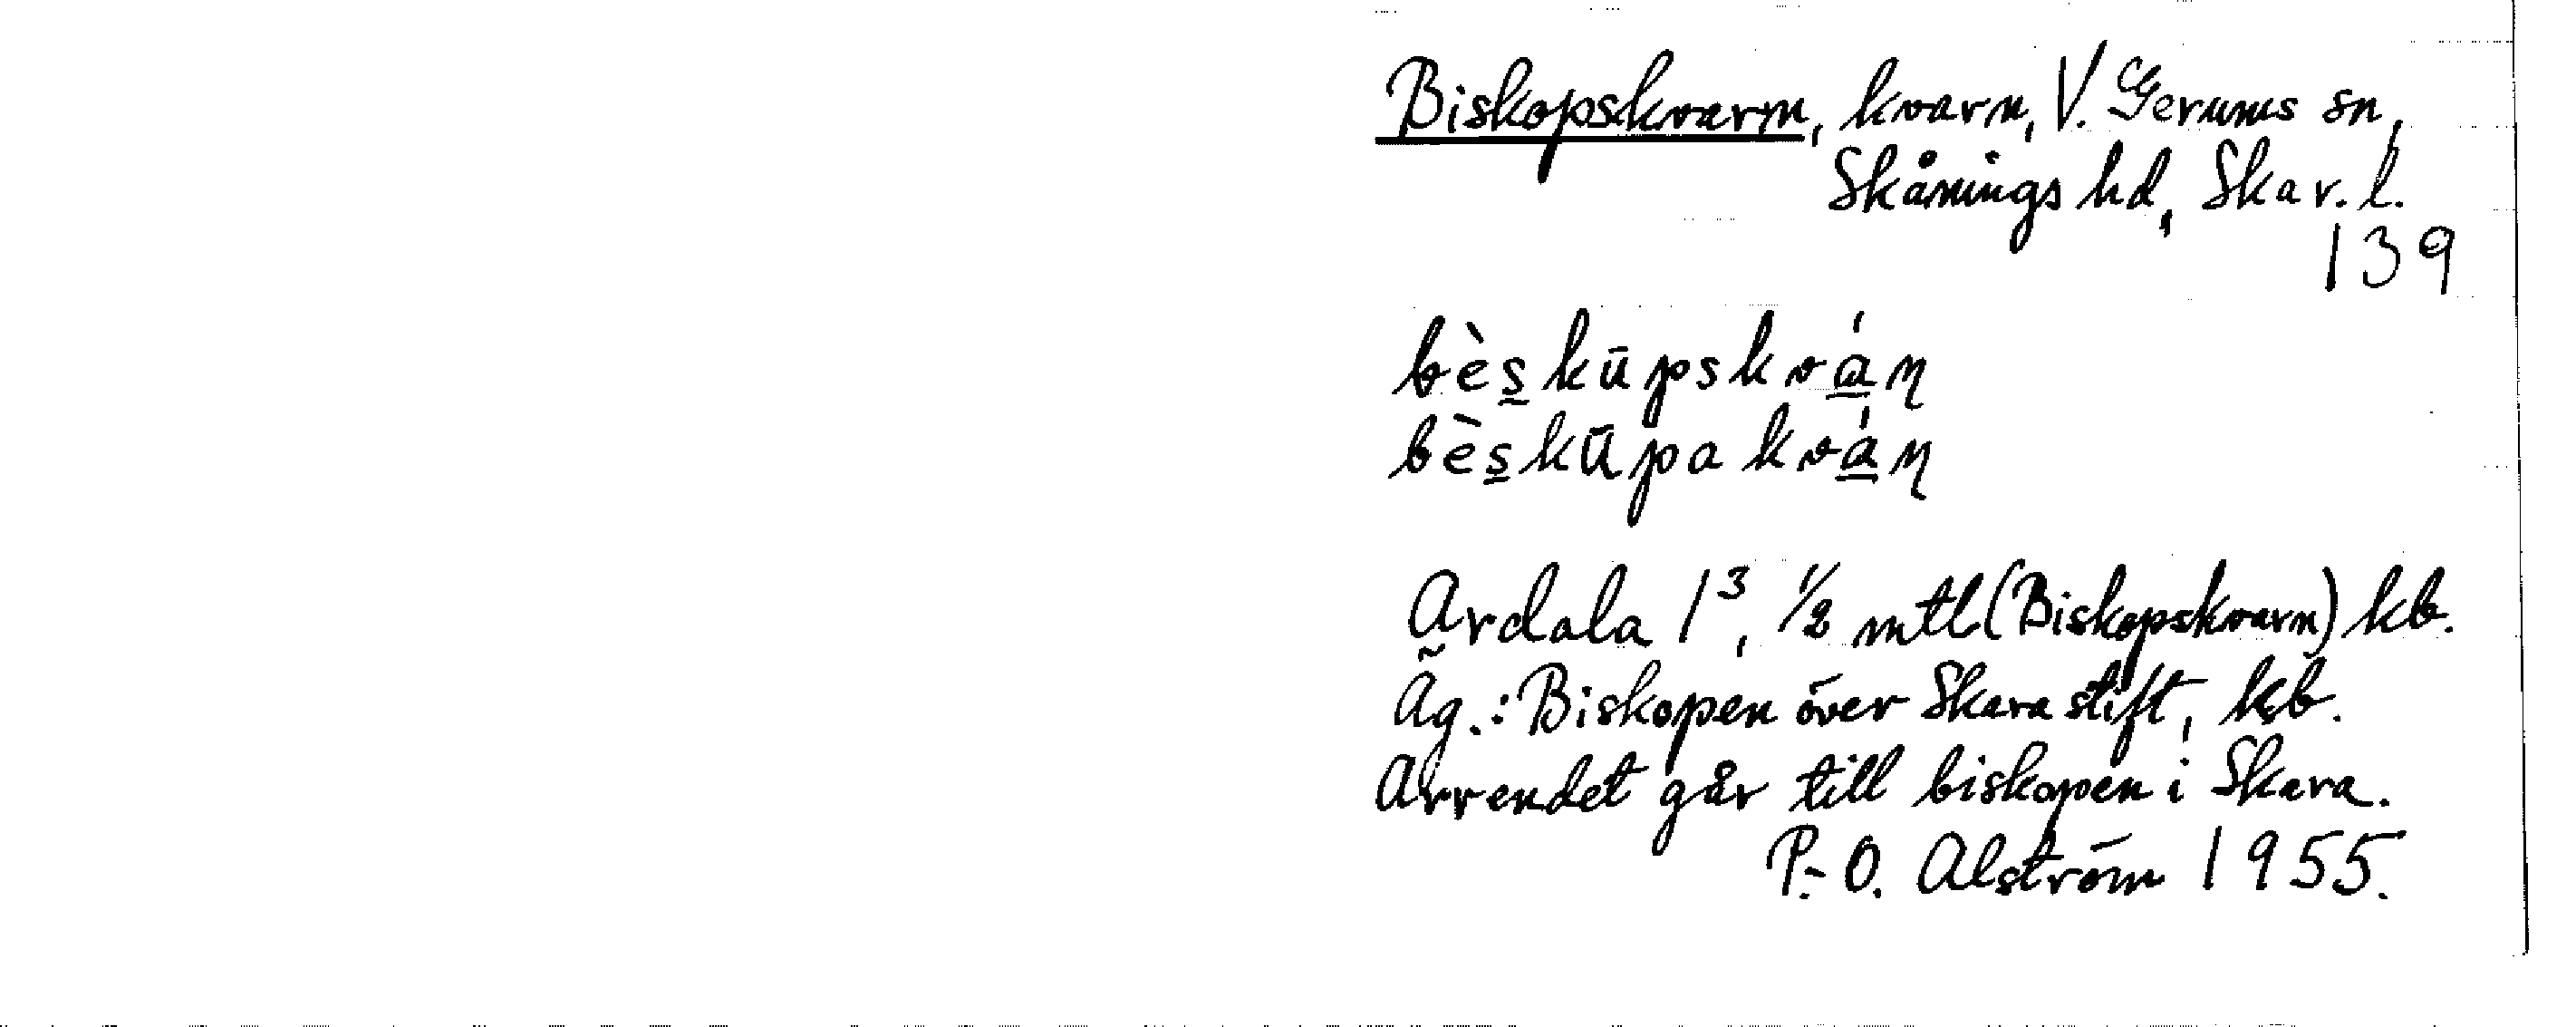 Biskopskvarn, kvarn, V. Gerums sn,
Skånings hd, Skar. l.
139
bès̱kūpskvá̱ɳ
bès̱kūpakvá̱ɳ
Ardala 1³, 1/2 mtl (Biskopskvarn) kb.
Äg.: Biskopen över Skara stift, kb.
Arrendet går till biskopen i Skara.
P.-O. Alström 1955.